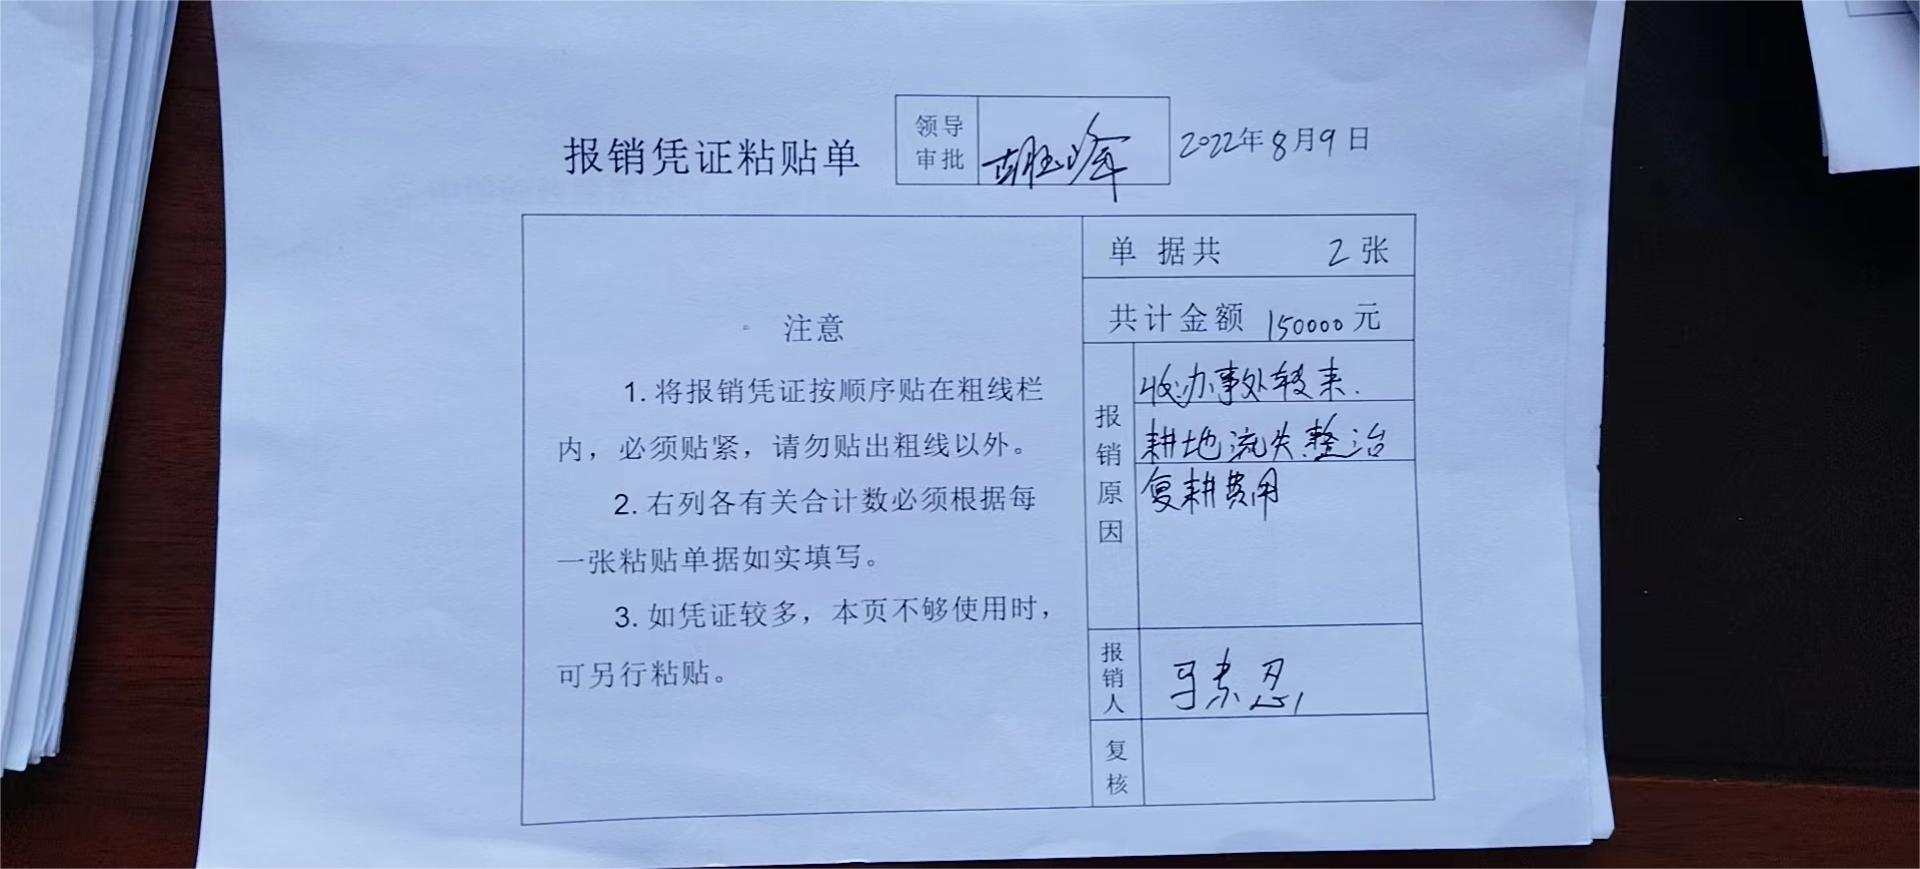 报销凭证粘贴单
领导
审批
2022年8月9日
单据共 2张
共计金额 150000元
注意
1. 将报销凭证按顺序贴在粗线栏
内，必须贴紧，请勿贴出粗线以外。
2. 右列各有关合计数必须根据每
一张粘贴单据如实填写。
3. 如凭证较多，本页不够使用时，
可另行粘贴。
报销原因
收办事处转来.
耕地流失整治
复耕费用
报销人
马素忍
复核